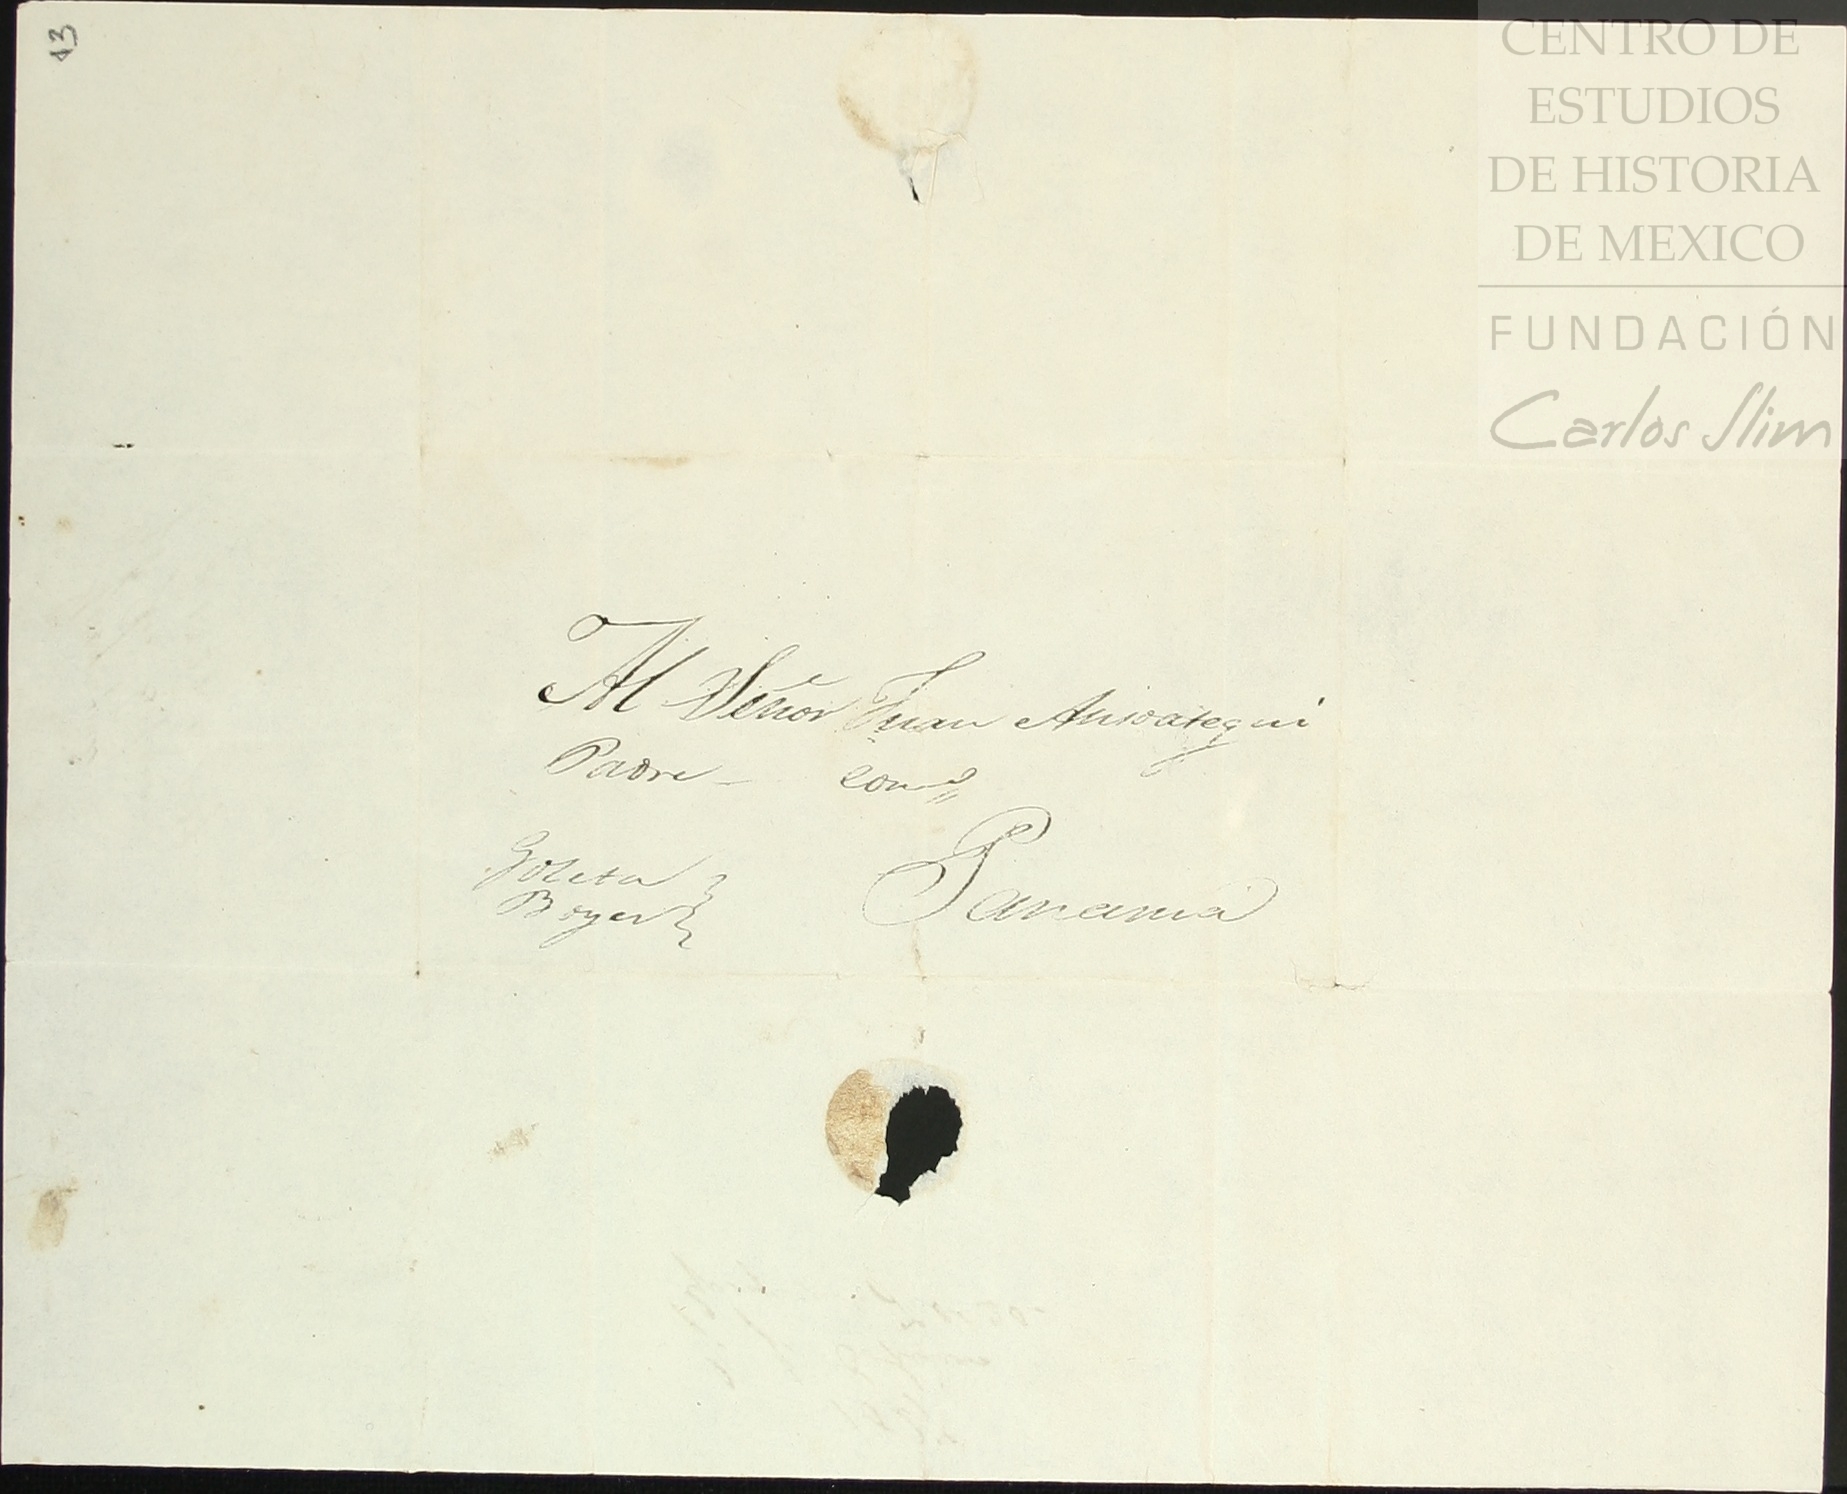 13
CENTRO DE
ESTUDIOS
DE HISTORIA
DE MEXICO
FUNDACIÓN
Carlos Slim
Al Señor Juan Ansoategui
Padre –
Goleta
Boyer
Panama